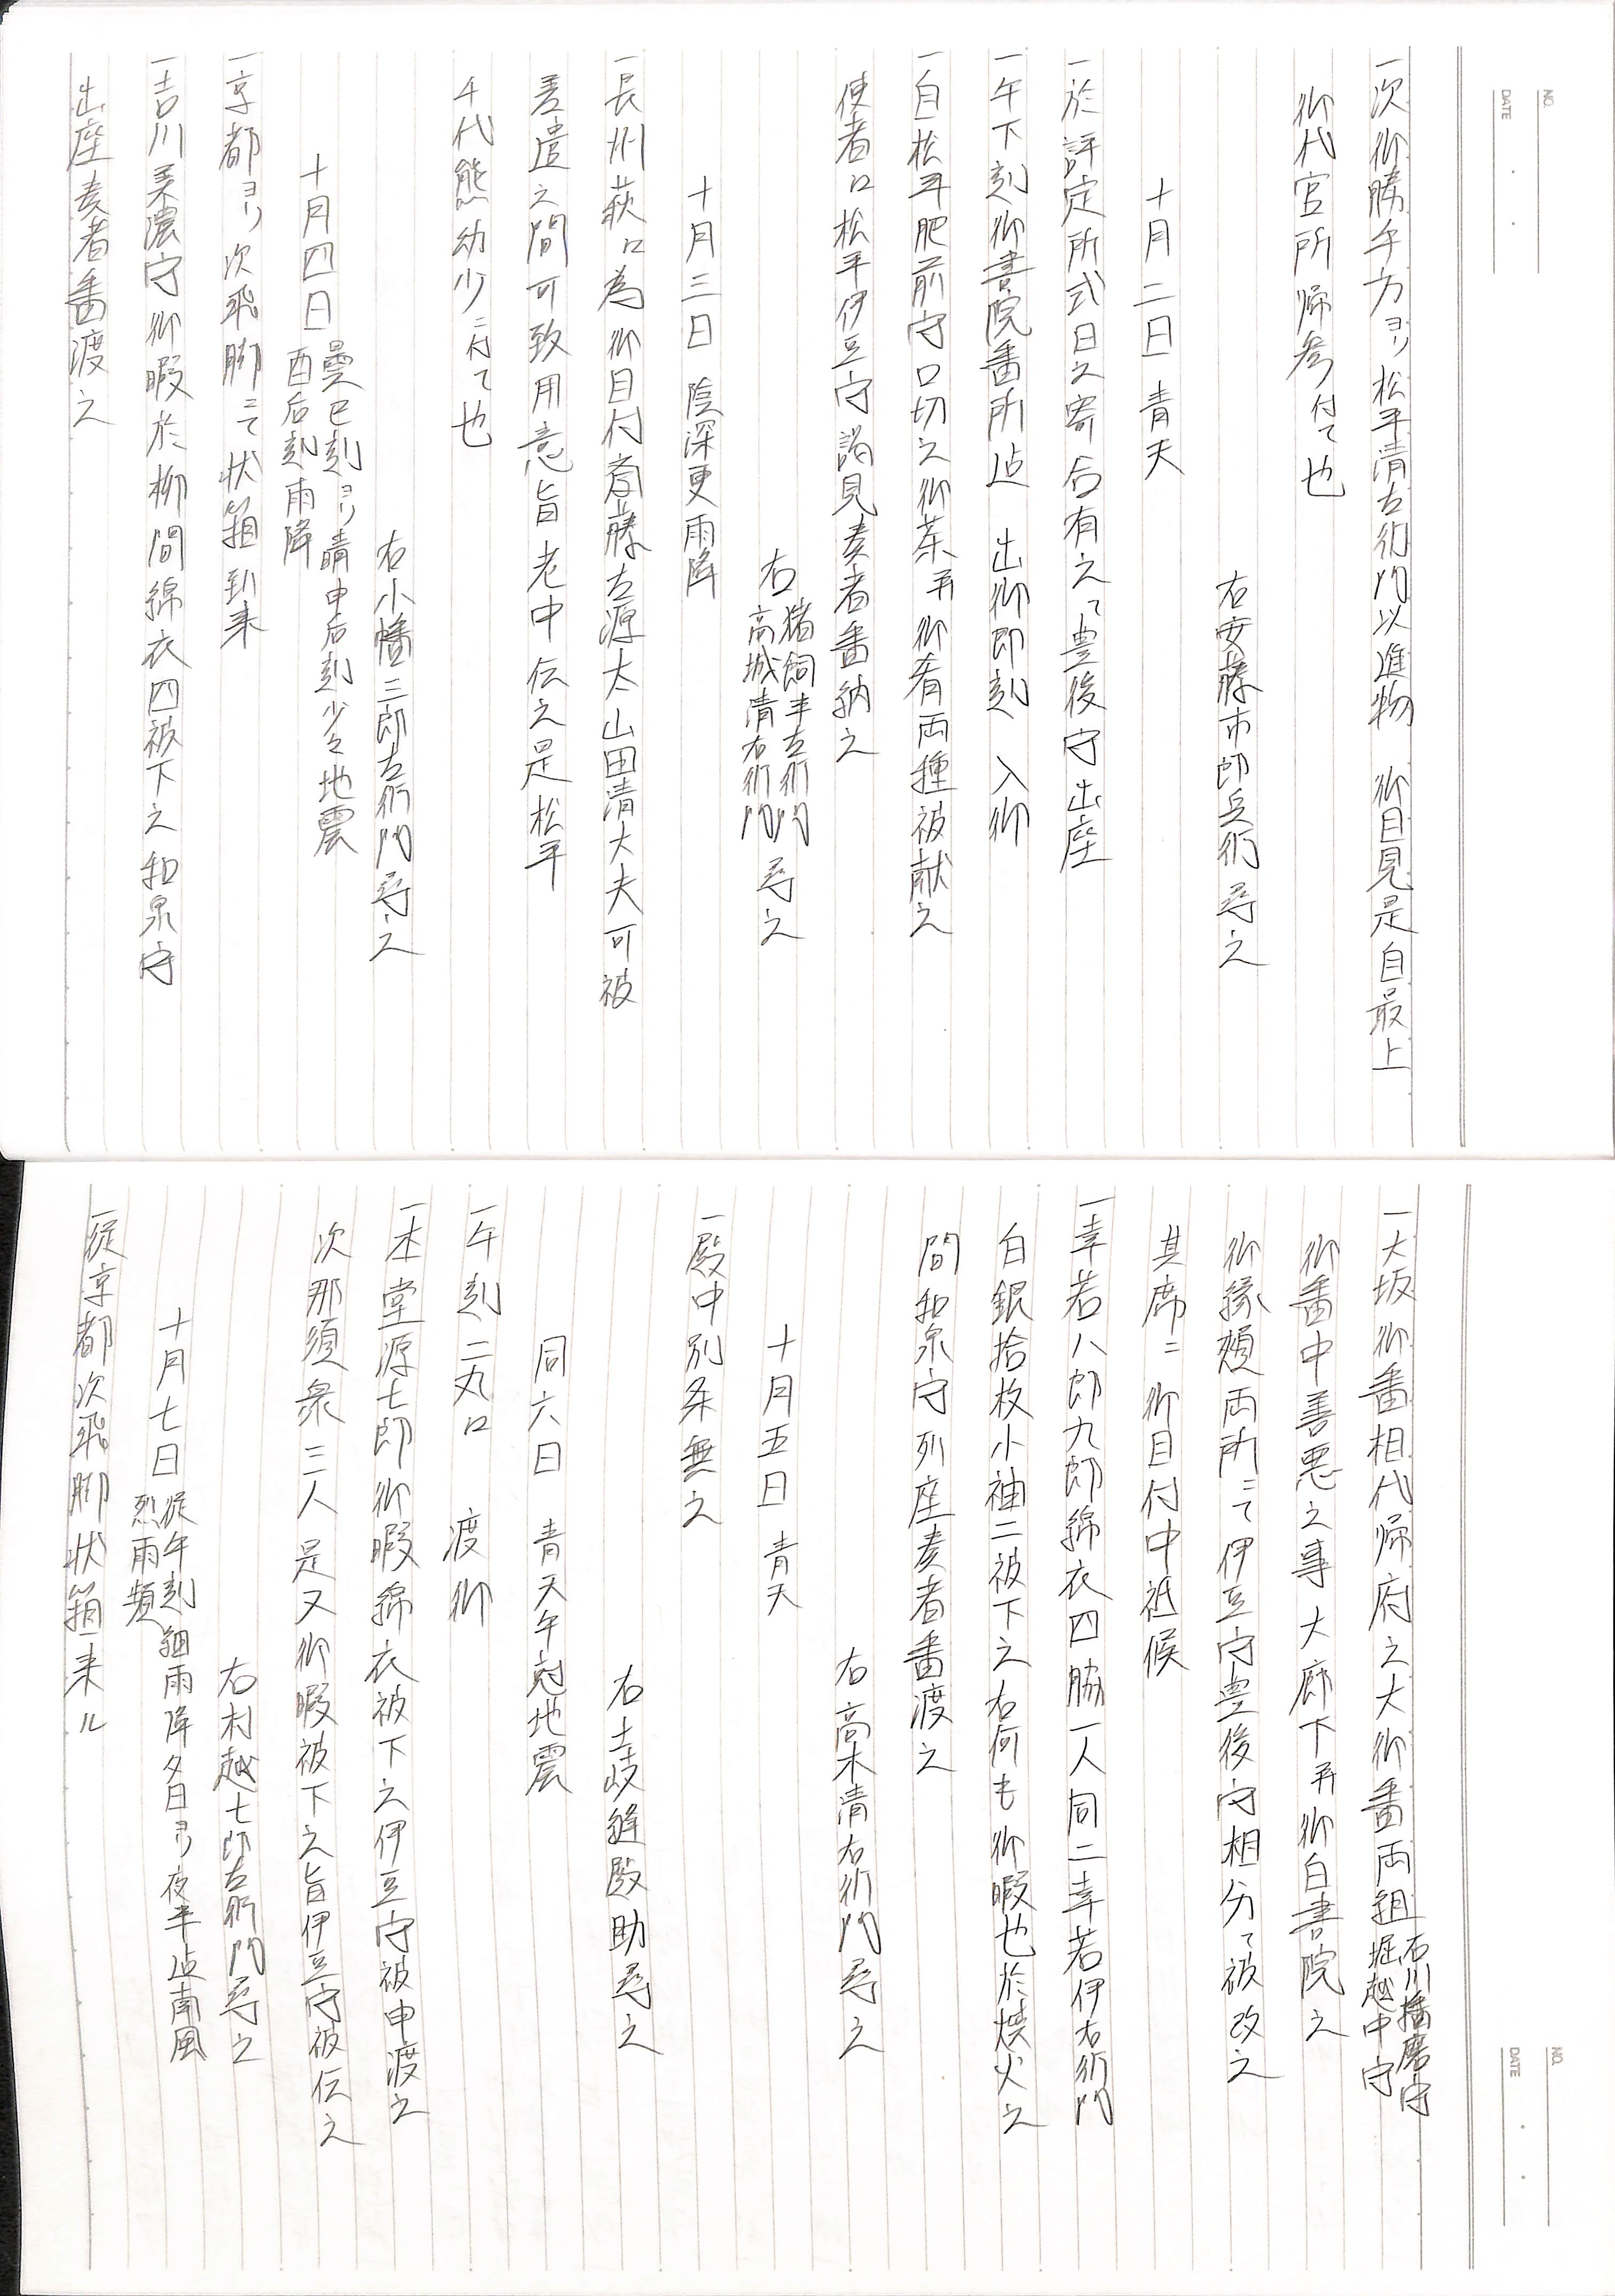 一次御勝手方ゟ松平清左衛門以進物　御目見是自最上
御代官所帰参付て也
右安藤市郎兵衛尋之
十月二日 青天
一於評定所式日之寄合有之て豊後守出座
一午下刻御書院番所迄　出御即刻　入御
一自松平肥前守口切之御茶并御肴両種被献之
使者口松平伊豆守謁見奏者番納之
右 猪飼半左衛門 高城清右衛門 尋之
十月三日 陰深更雨降
一長州萩口為御目付斎藤左源太山田清大夫可被
差遣之間可致用意旨老中伝之是松平
千代熊幼少ニ付て也
右小幡三郎左衛門尋之
十月四日 曇巳刻ゟ晴申后刻少々地震 酉后刻雨降
一京都ゟ次飛脚ニて状箱到来
一吉川美濃守御暇於柳間綿衣四被下之和泉守
出座奏者番渡之
一大坂御番相代帰府之大御番両組 石川播磨守 堀越中守
御番中善悪之事大廊下并御白書院之
御縁頬両所ニて伊豆守豊後守相分て被改之
其席ニ御目付中祗候
一幸若八郎九郎綿衣四脇一人同二幸若伊右衛門
白銀拾枚小袖二被下之右何も御暇也於焼火之
間和泉守列座奏者番渡之
右高木清右衛門尋之
十月五日 青天
一殿中別条無之
右土岐縫殿助尋之
同六日 青天午刻地震
一午刻二丸口　渡御
一本堂源七郎御暇綿衣被下之伊豆守被申渡之
次那須衆三人是又御暇被下之旨伊豆守被伝之
右村越七郎左衛門尋之
十月七日 従午刻細雨降夕日ゟ夜半迄南風 烈雨頻
一従京都次飛脚状箱来ル
NO.
DATE
NO.
DATE